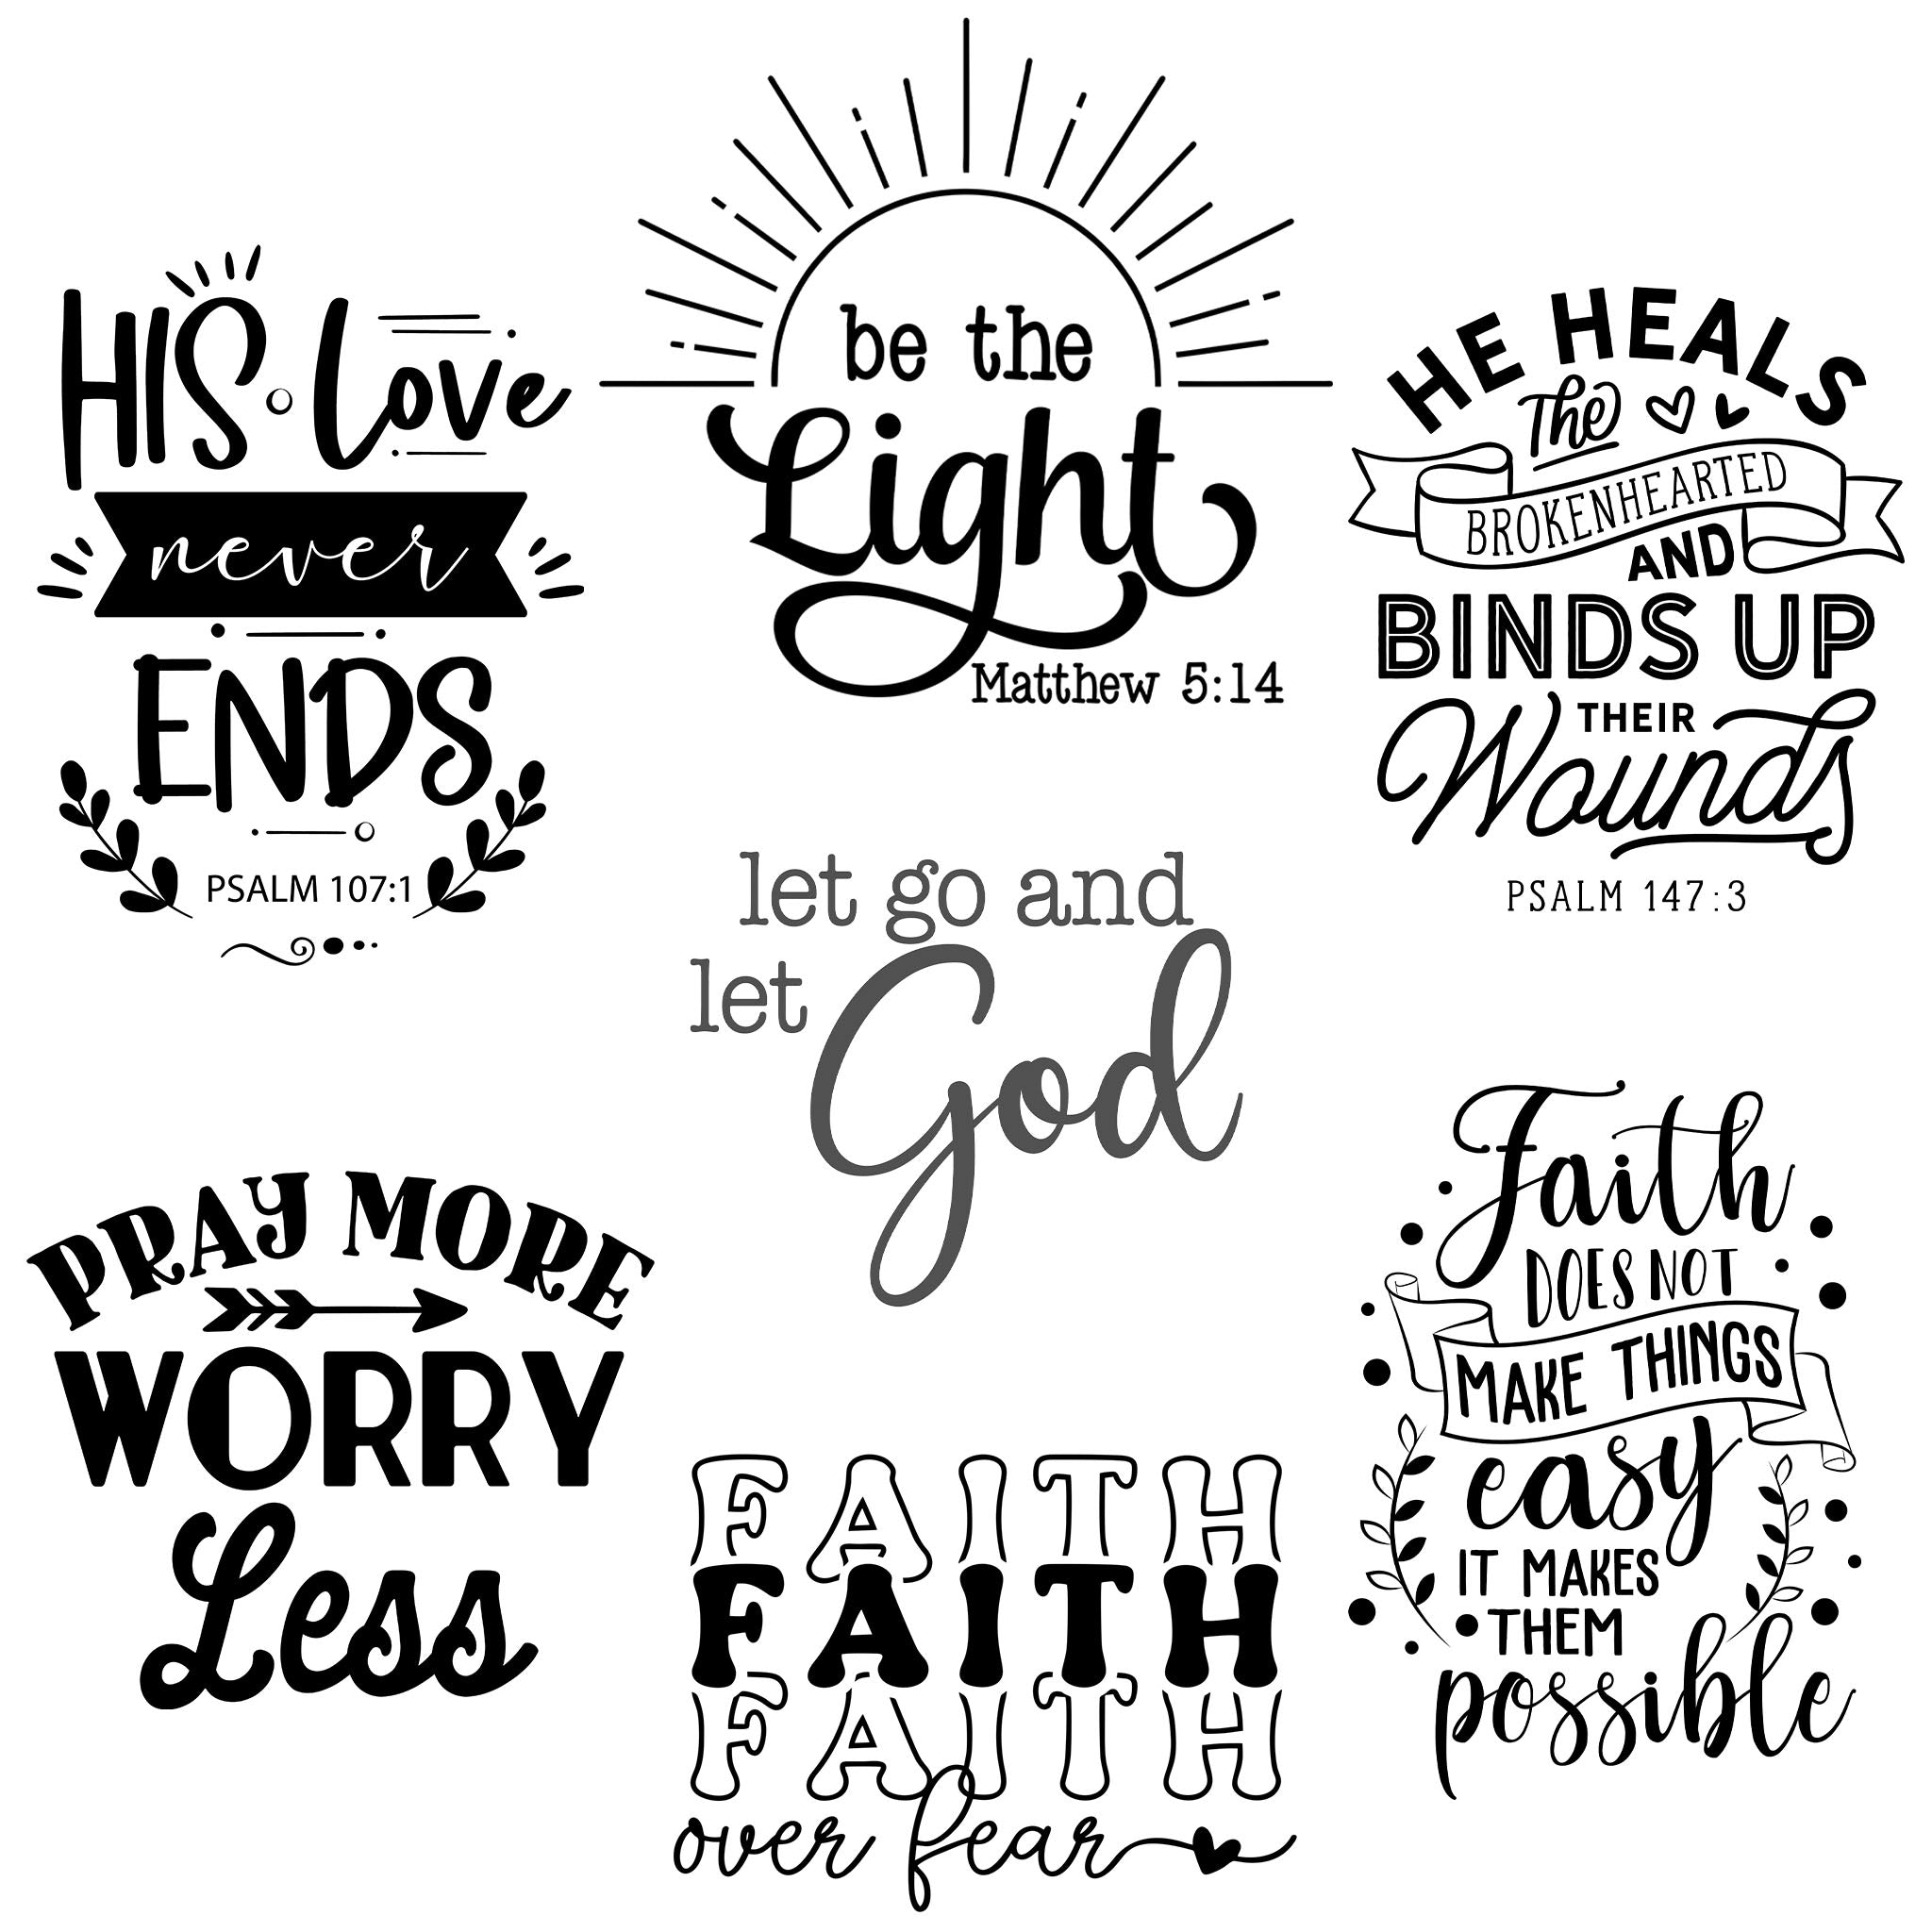 HIS Love
never
ENDS
PSALM 107:1
be the
Light
Matthew 5:14
HE HEALS
The
BROKENHEARTED
AND
BINDS UP
THEIR
Wounds
PSALM 147:3
let go and
let God
PRAY MORE
WORRY
Less
FAITH
FAITH
FAITH
over fear
Faith
DOES NOT
MAKE THINGS
easy
IT MAKES
THEM
possible